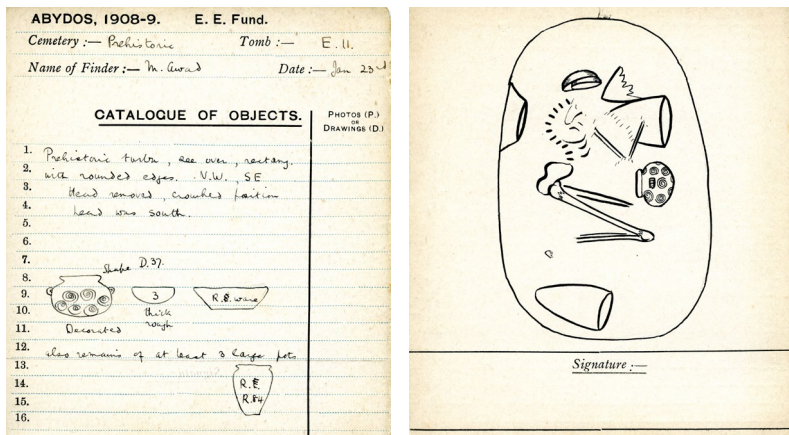 ABYDOS, 1908-9. E. E. Fund.
Cemetery :— Prehistoric Tomb :— E. 11.
Name of Finder :— M. Awad Date :— Jan 23rd
CATALOGUE OF OBJECTS.
PHOTOS (P.)
OR
DRAWINGS (D.)
1. Prehistoric tomb, see over, rectang.
2. with rounded edges. V.W, SE
3. Head removed, crouched position
4. head was south.
5.
6.
7. Shape D.37.
8.
9. 3 R.S. ware
10. thick
rough
11. Decorated
12. also remains of at least 3 large pots
13.
14. R.
15. R.84
16.
Signature :—